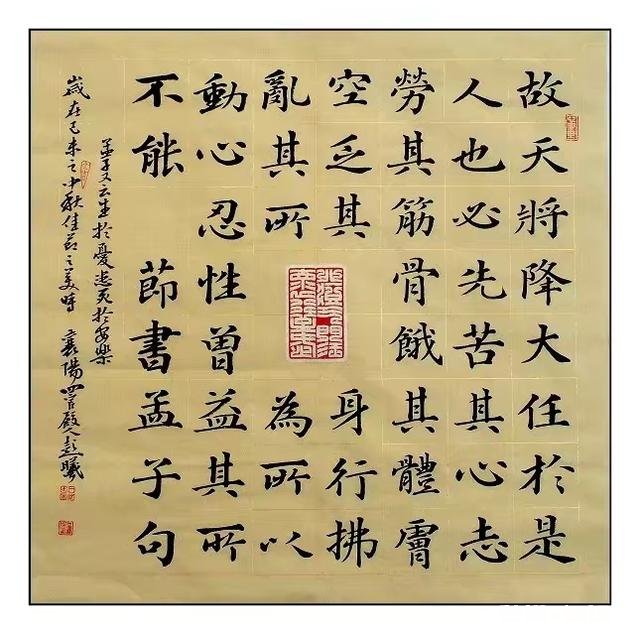 故天將降大任於是
人也必先苦其心志
勞其筋骨餓其體膚
空乏其身行拂
亂其所為所以
動心忍性曾益其所
不能 節書孟子句
孟子又云生於憂患死於安樂
歲在未之中秋佳節之美時 襄陽四官殿人曦